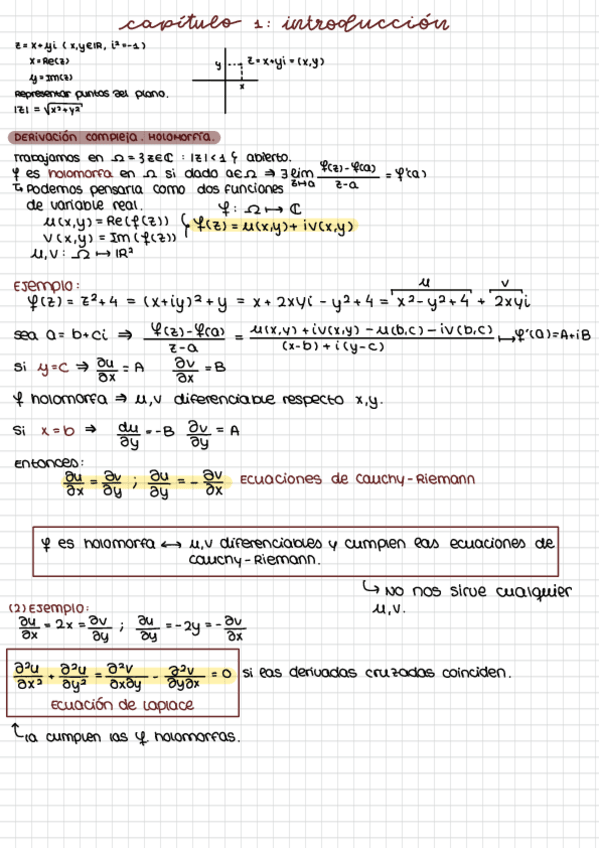 capítulo 1: introducción
z = x+yi (x,y∈ℝ, i²=-1)
x = Re(z)
y = Im(z)
Representar puntos del plano.
|z| = √x²+y²
y z = x+yi = (x,y)
x
DERIVACIÓN COMPLEJA. HOLOMORFÍA.
Trabajamos en Ω = {z∈ℂ : |z|<1} abierto.
φ es holomorfa en Ω si dado a∈Ω ⇒ ∃ lim z↦a (φ(z)-φ(a))/(z-a) = φ'(a)
↳ Podemos pensarla como dos funciones
de variable real. φ: Ω ↦ ℂ
u(x,y) = Re(φ(z))
v(x,y) = Im(φ(z))
φ(z) = u(x,y) + iv(x,y)
u,v: Ω ↦ ℝ²
Ejemplo:
φ(z) = z²+4 = (x+iy)²+y = x + 2xyi - y²+4 = x²-y²+4 + 2xyi
u v
sea a = b+ci ⇒ (φ(z)-φ(a))/(z-a) = (u(x,y)+iv(x,y)-u(b,c)-iv(b,c))/((x-b)+i(y-c)) ↦ φ'(a)=A+iB
si y=c ⇒ ∂u/∂x = A ∂v/∂x = B
φ holomorfa ⇒ u,v diferenciable respecto x,y.
Si x=b ⇒ du/∂y = -B ∂v/∂y = A
Entonces:
∂u/∂x = ∂v/∂y ; ∂u/∂y = - ∂v/∂x Ecuaciones de Cauchy-Riemann
φ es holomorfa ↔ u,v diferenciables y cumplen las ecuaciones de
Cauchy-Riemann.
↳ No nos sirve cualquier
u,v.
(2) Ejemplo:
∂u/∂x = 2x = ∂v/∂y ; ∂u/∂y = -2y = - ∂v/∂x
∂²u/∂x² + ∂²u/∂y² = ∂²v/∂x∂y - ∂²v/∂y∂x = 0 si las derivadas cruzadas coinciden.
Ecuación de Laplace
↑ la cumplen las φ holomorfas.